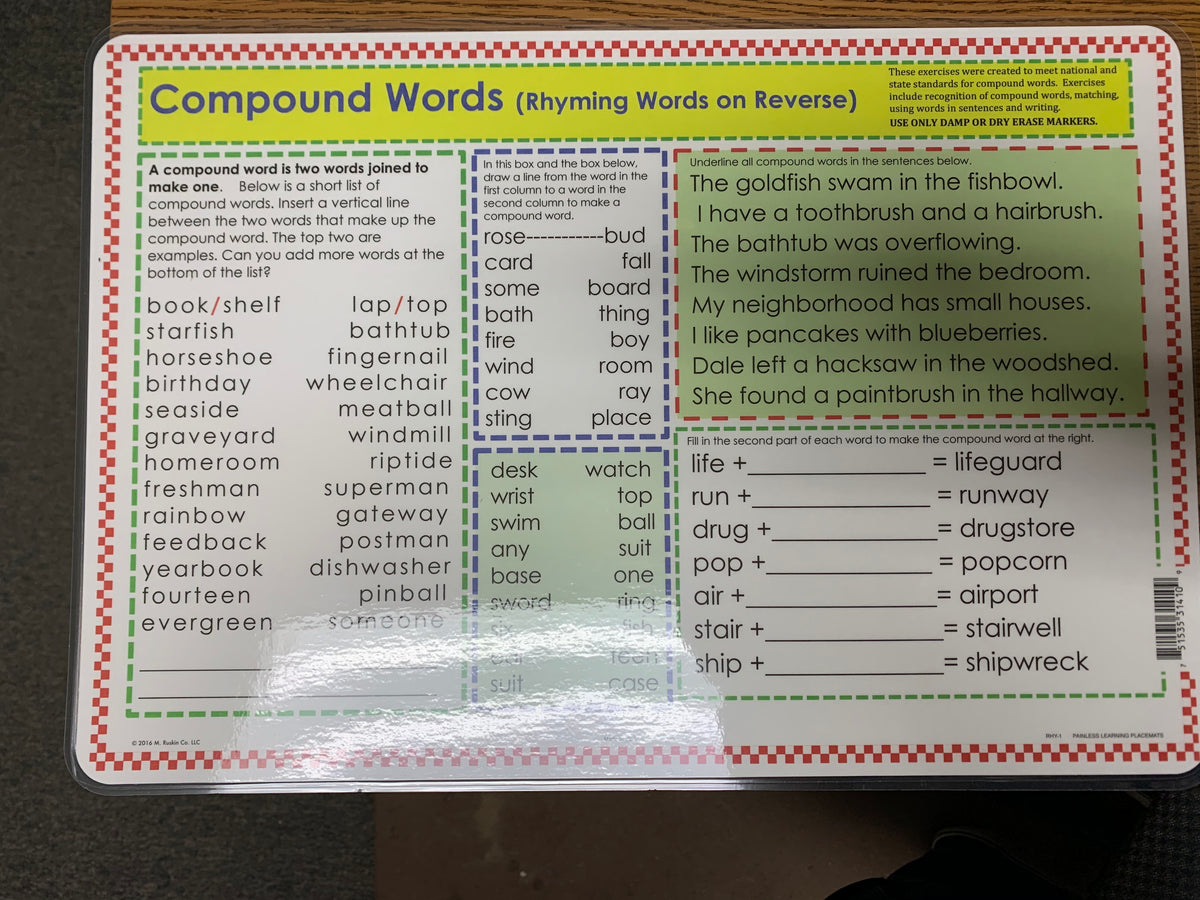 Compound Words (Rhyming Words on Reverse)
These exercises were created to meet national and
state standards for compound words. Exercises
include recognition of compound words, matching,
using words in sentences and writing.
USE ONLY DAMP OR DRY ERASE MARKERS.
A compound word is two words joined to
make one. Below is a short list of
compound words. Insert a vertical line
between the two words that make up the
compound word. The top two are
examples. Can you add more words at the
bottom of the list?
book/shelf lap/top
starfish bathtub
horseshoe fingernail
birthday wheelchair
seaside meatball
graveyard windmill
homeroom riptide
freshman superman
rainbow gateway
feedback postman
yearbook dishwasher
fourteen pinball
evergreen someone
In this box and the box below,
draw a line from the word in the
first column to a word in the
second column to make a
compound word.
rose-----------bud
card fall
some board
bath thing
fire boy
wind room
cow ray
sting place
desk watch
wrist top
swim ball
any suit
base one
sword ring
six fish
ear teen
suit case
Underline all compound words in the sentences below.
The goldfish swam in the fishbowl.
I have a toothbrush and a hairbrush.
The bathtub was overflowing.
The windstorm ruined the bedroom.
My neighborhood has small houses.
I like pancakes with blueberries.
Dale left a hacksaw in the woodshed.
She found a paintbrush in the hallway.
Fill in the second part of each word to make the compound word at the right.
life +______________ = lifeguard
run +______________ = runway
drug +______________ = drugstore
pop +______________ = popcorn
air +______________ = airport
stair +______________ = stairwell
ship +______________ = shipwreck
© 2016 M. Ruskin Co. LLC
RHY-1 PAINLESS LEARNING PLACEMATS